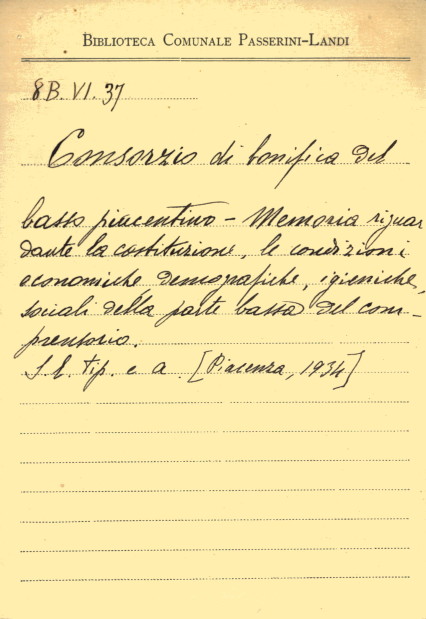 BIBLIOTECA COMUNALE PASSERINI-LANDI
8B. VI. 37
Consorzio di bonifica del
basso piacentino - Memoria riguar
dante la costituzione, le condizioni
economiche demografiche, igieniche,
sociali della parte bassa del com-
prensorio.
S. l. tip. e a. [Piacenza, 1934]